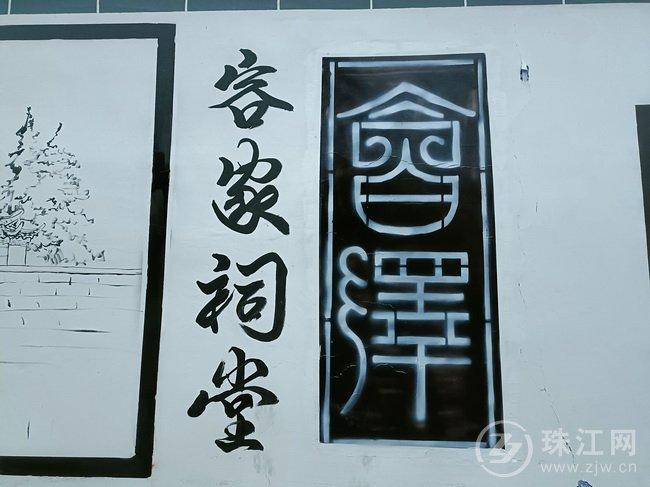 會澤
容家祠堂
珠江网
www.zjw.cn